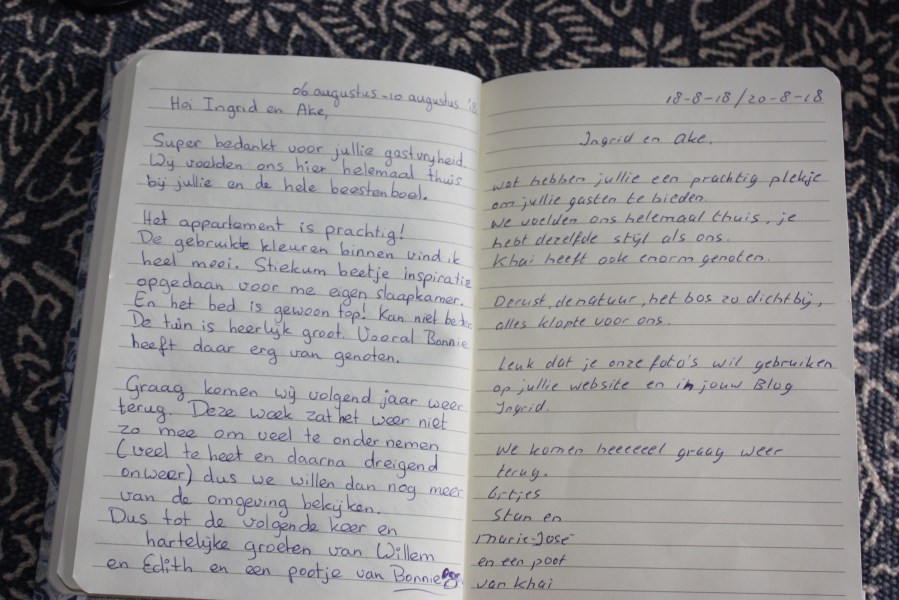 06 augustus - 10 augustus '18
Hoi Ingrid en Ake,
Super bedankt voor jullie gastvryheid.
Wij voelden ons hier helemaal thuis
bij jullie en de hele beestenboel.
Het appartement is prachtig!
De gebruikte kleuren binnen vind ik
heel mooi. Stiekum beetje inspiratie
opgedaan voor me eigen slaapkamer.
En het bed is gewoon top! Kan niet beter
De tuin is heerlijk groot. Vooral Bonnie
heeft daar erg van genoten.
Graag komen wij volgend jaar weer
terug. Deze week zat het weer niet
zo mee om veel te ondernemen
(veel te heet en daarna dreigend
onweer) dus we willen dan nog meer
van de omgeving bekijken.
Dus tot de volgende keer en
hartelijke groeten van Willem
en Edith en een pootje van Bonnie
18-8-18/20-8-18
Ingrid en Ake.
wat hebben jullie een prachtig plekje
om jullie gasten te bieden.
We voelden ons helemaal thuis, je
hebt dezelfde stijl als ons.
Khai heeft ook enorm genoten.
De rust, de natuur, het bos zo dichtbij,
alles klopte voor ons.
Leuk dat je onze foto's wil gebruiken
op jullie website en in jouw Blog
Ingrid.
We komen heeeeeel graag weer
terug.
Grtjes
Stan en
Marie-José
en een poot
van Khai